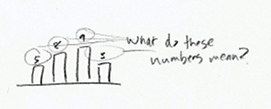 5 8 9 3
What do these
numbers mean?